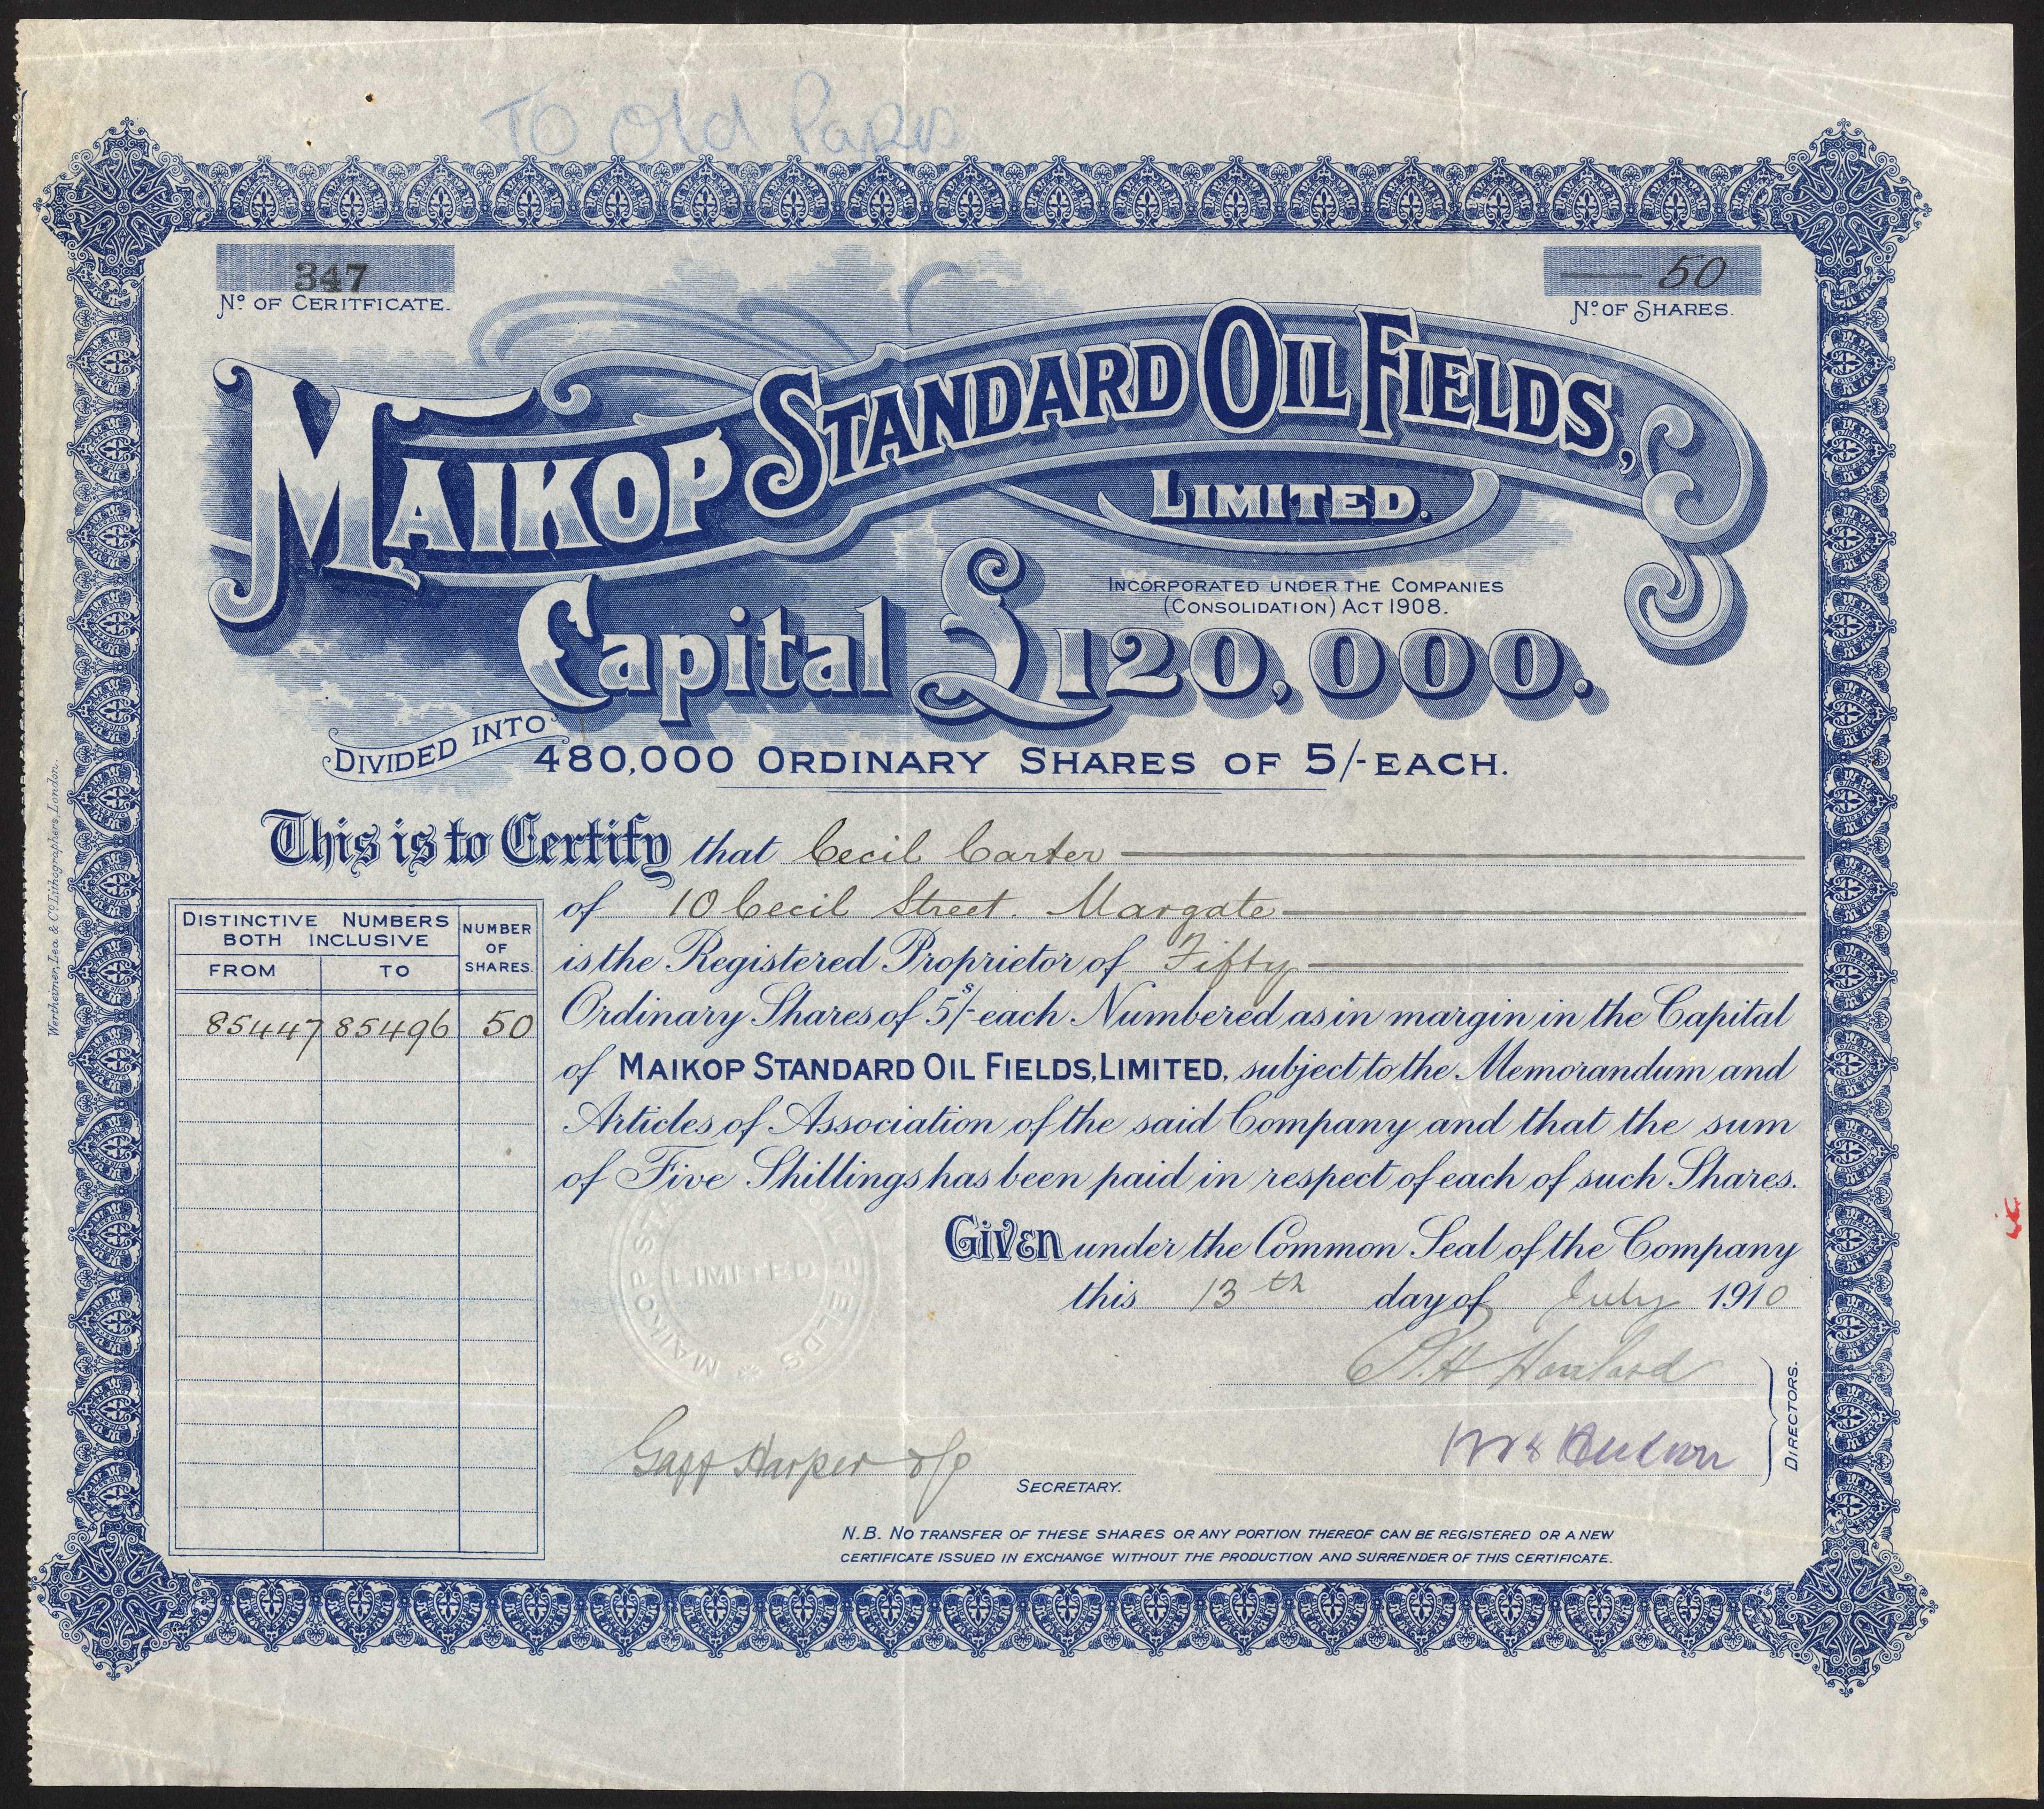 TO Old
347
Nº OF CERITFICATE.
50
Nº OF SHARES.
MAIKOP STANDARD OIL FIELDS,
LIMITED.
INCORPORATED UNDER THE COMPANIES
(CONSOLIDATION) ACT 1908.
Capital £120,000.
DIVIDED INTO
480,000 ORDINARY SHARES OF 5/- EACH.
This is to Certify that Cecil Carter
of 10 Cecil Street. Margate
is the Registered Proprietor of Fifty
Ordinary Shares of 5s/- each Numbered as in margin in the Capital
of MAIKOP STANDARD OIL FIELDS, LIMITED, subject to the Memorandum and
Articles of Association of the said Company and that the sum
of Five Shillings has been paid in respect of each of such Shares.
DISTINCTIVE NUMBERS
BOTH INCLUSIVE
FROM TO
NUMBER
OF
SHARES.
85447 85496 50
Given under the Common Seal of the Company
this 13th day of July 1910
MAIKOP STA
LIMITED
DIRECTORS.
Harper
SECRETARY.
N.B. NO TRANSFER OF THESE SHARES OR ANY PORTION THEREOF CAN BE REGISTERED OR A NEW
CERTIFICATE ISSUED IN EXCHANGE WITHOUT THE PRODUCTION AND SURRENDER OF THIS CERTIFICATE.
Wertheimer, Lea & Co. Lithographers, London.